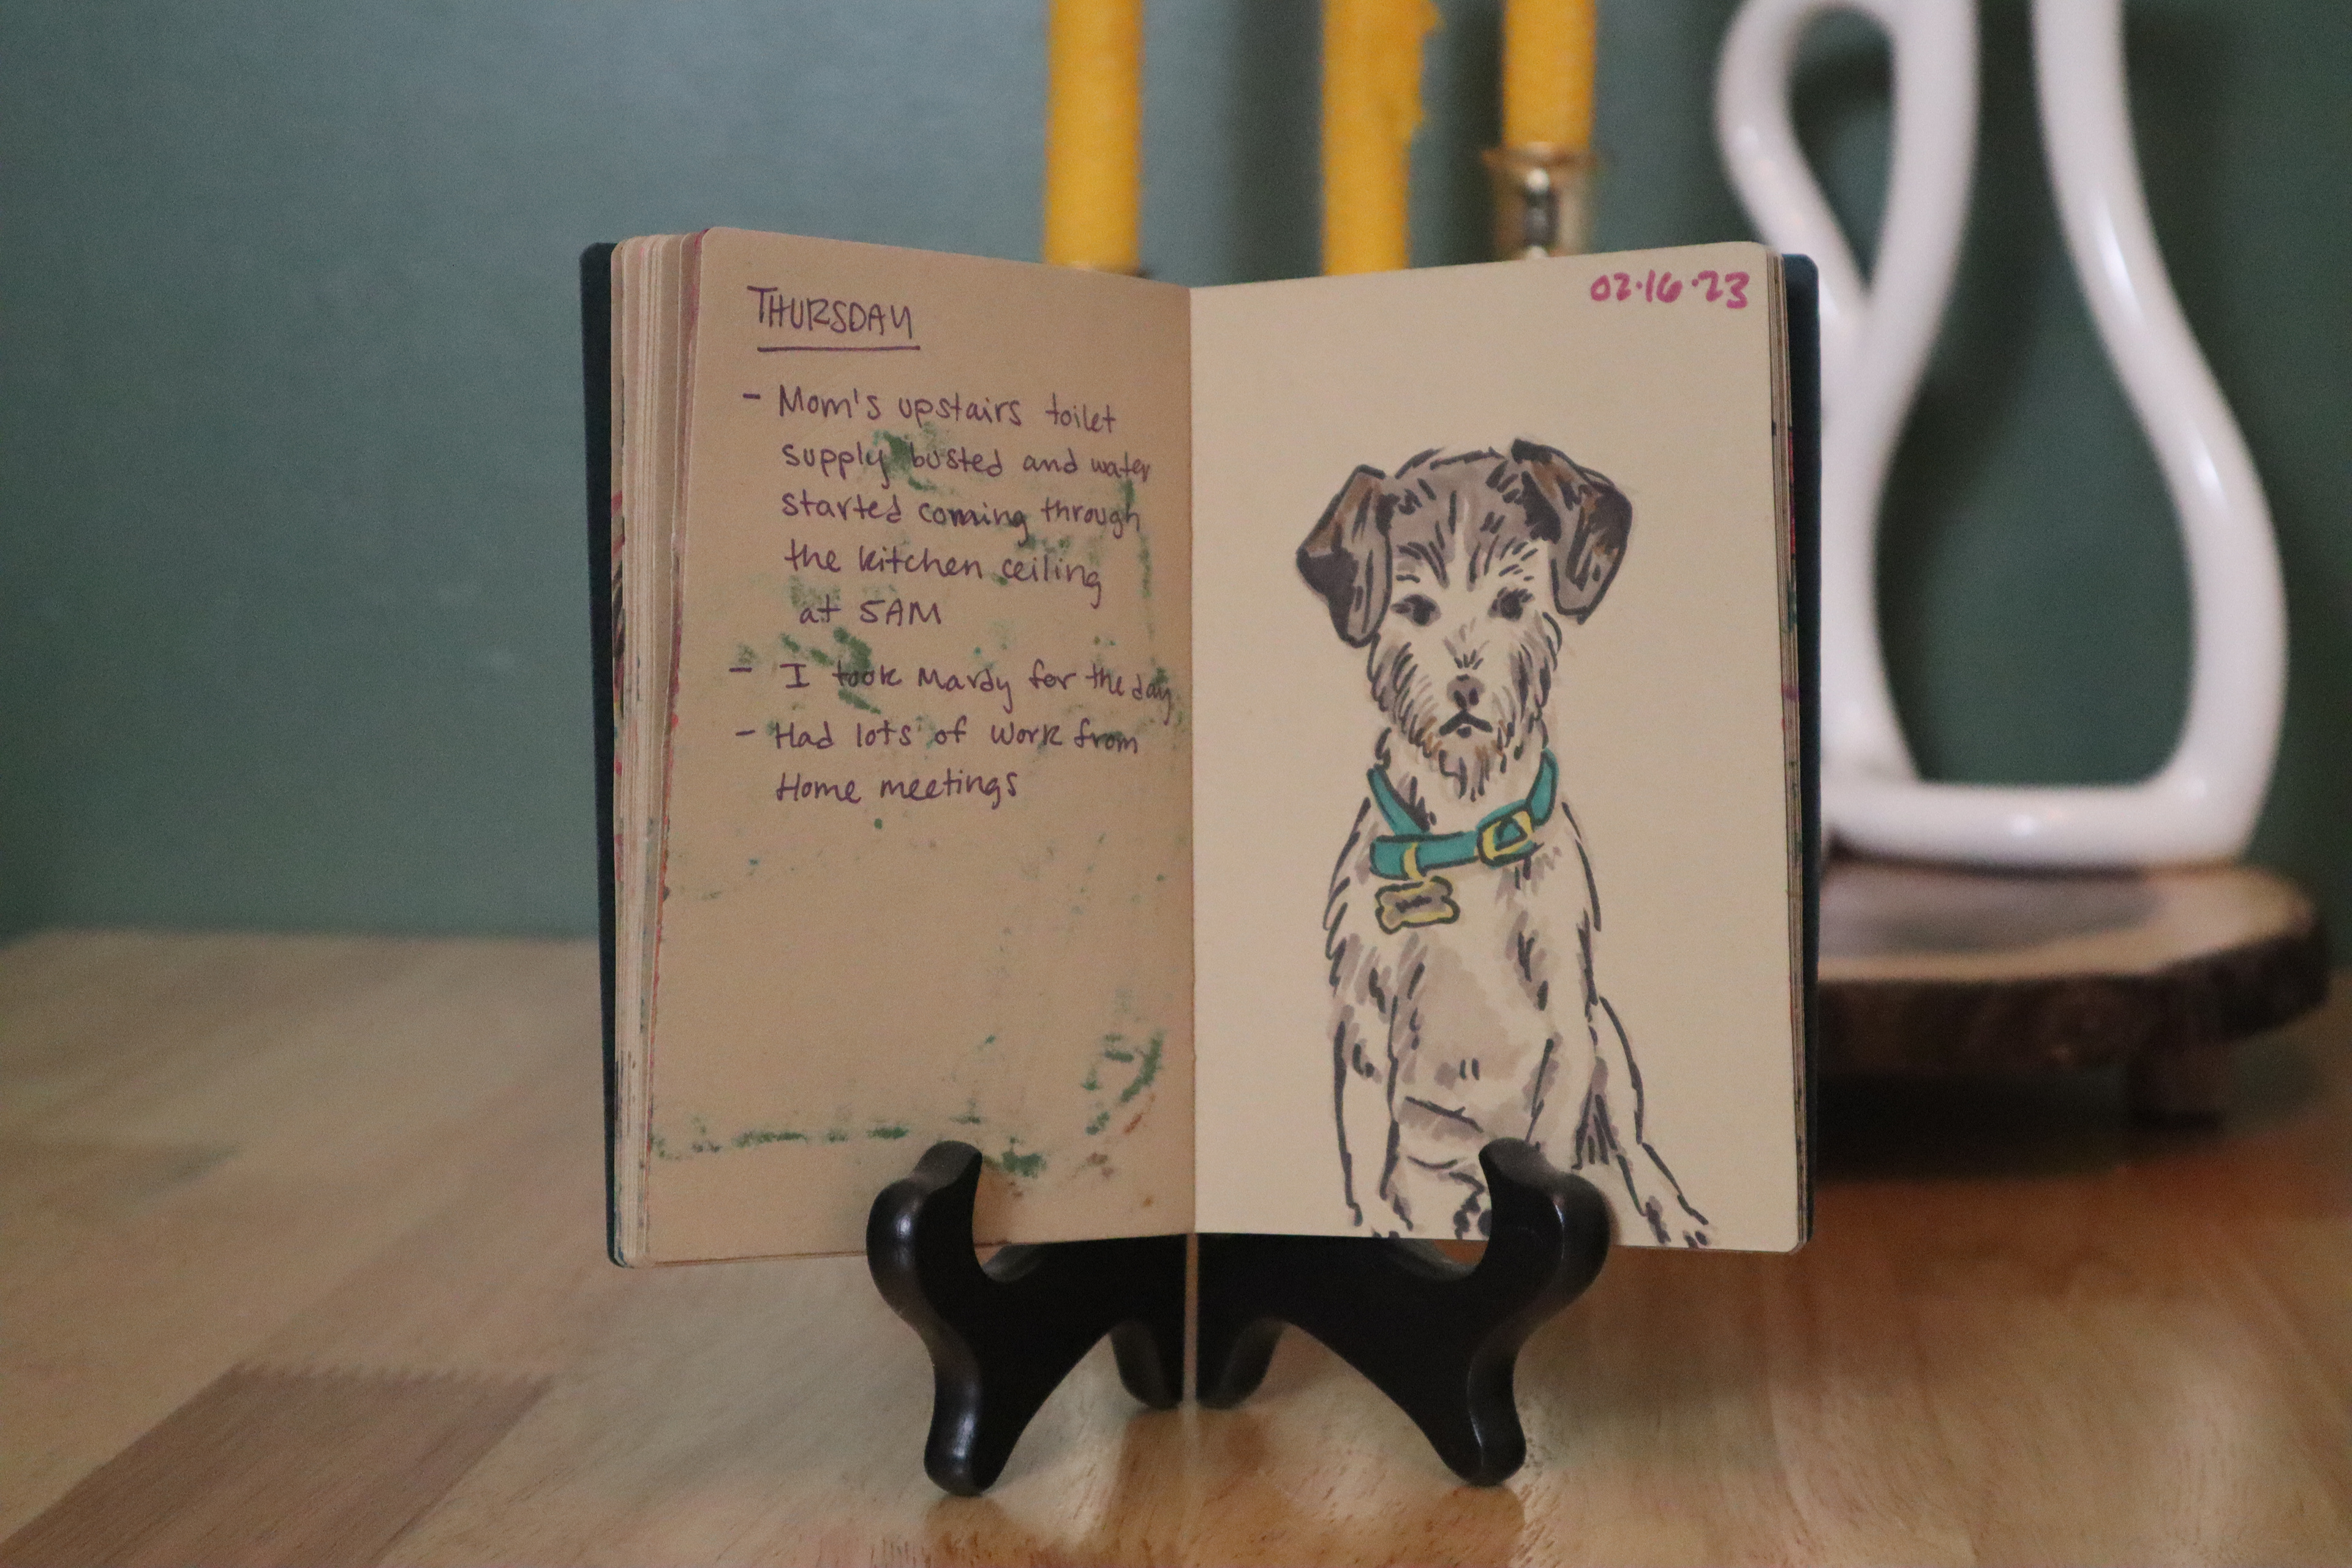 THURSDAY
- Mom's upstairs toilet
supply busted and water
started coming through
the kitchen ceiling
at 5AM
- I took Mardy for the day
- Had lots of work from
Home meetings
02.16.23